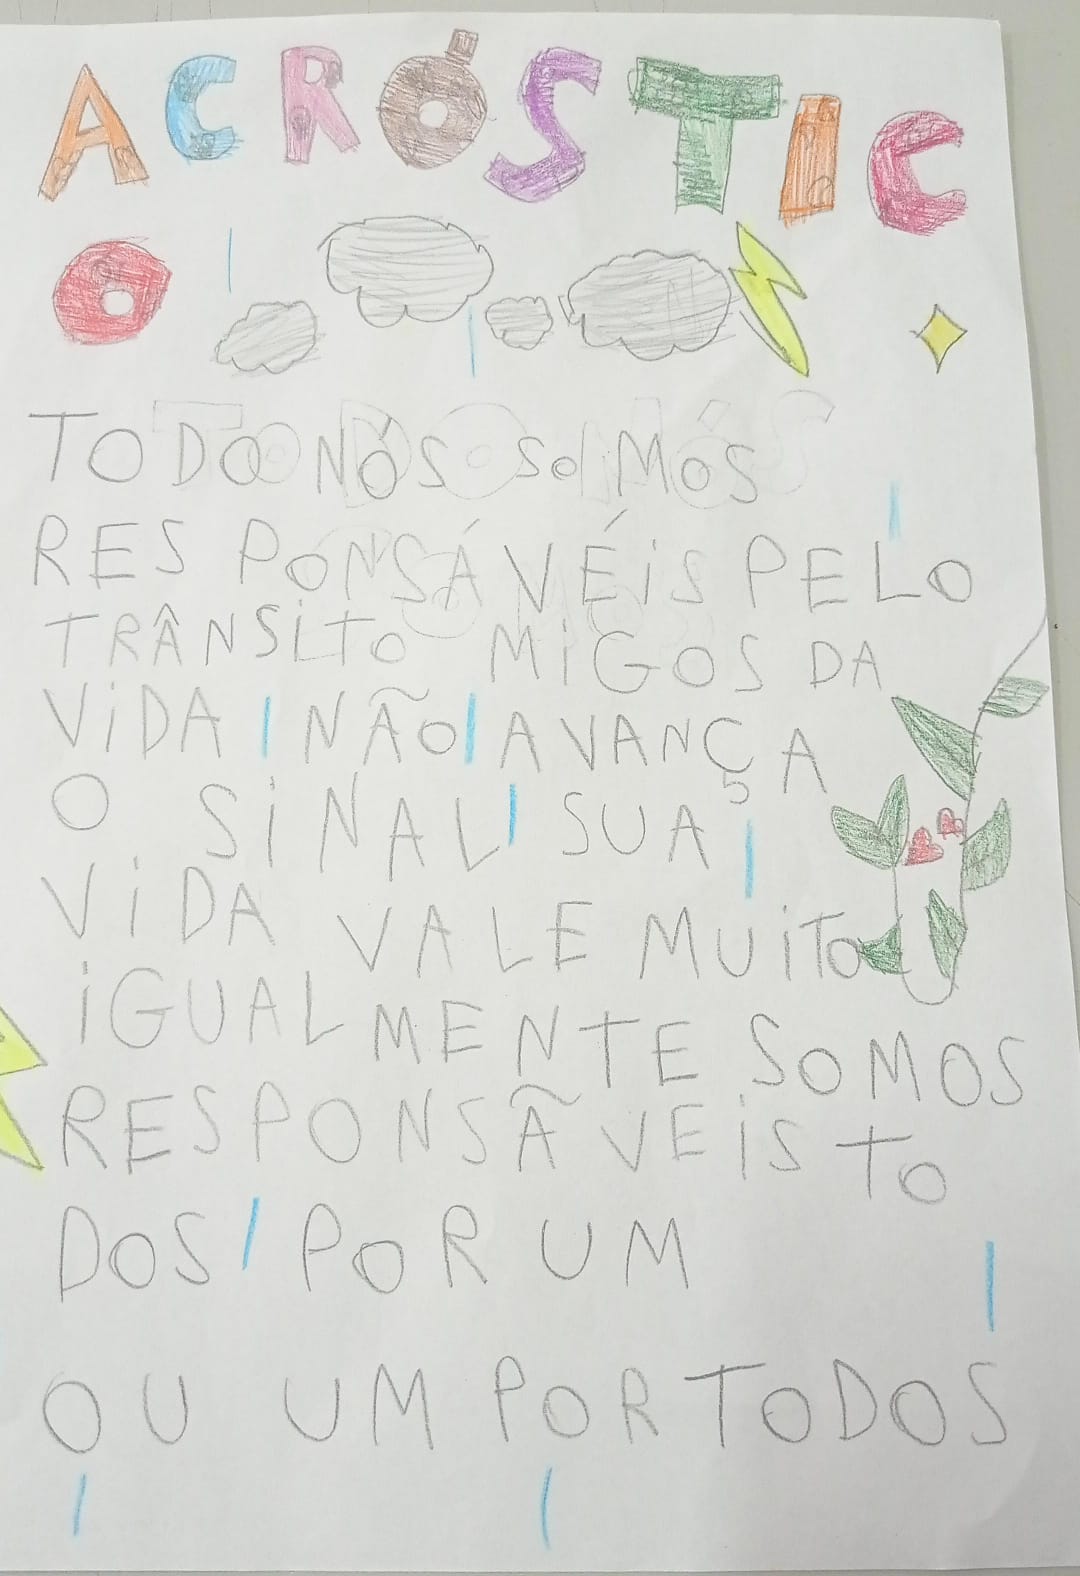 ACRÓSTIC
O
TODO NÓS SOMÓS
RESPONSÁVÉIS PELO
TRÂNSITO MIGOS DA
VIDA NÃO AVANÇA
O SINAL SUA
VIDA VALE MUITO
IGUALMENTE SOMOS
RESPONSÃVEIS TO
DOS POR UM
OU UM POR TODOS